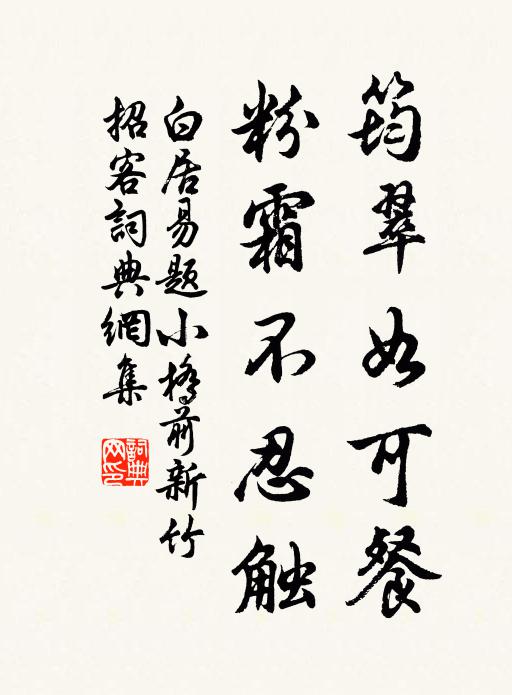 筠翠如可餐
粉霜不忍触
白居易题小橋前新竹
招客詞典網集
詞典
网印